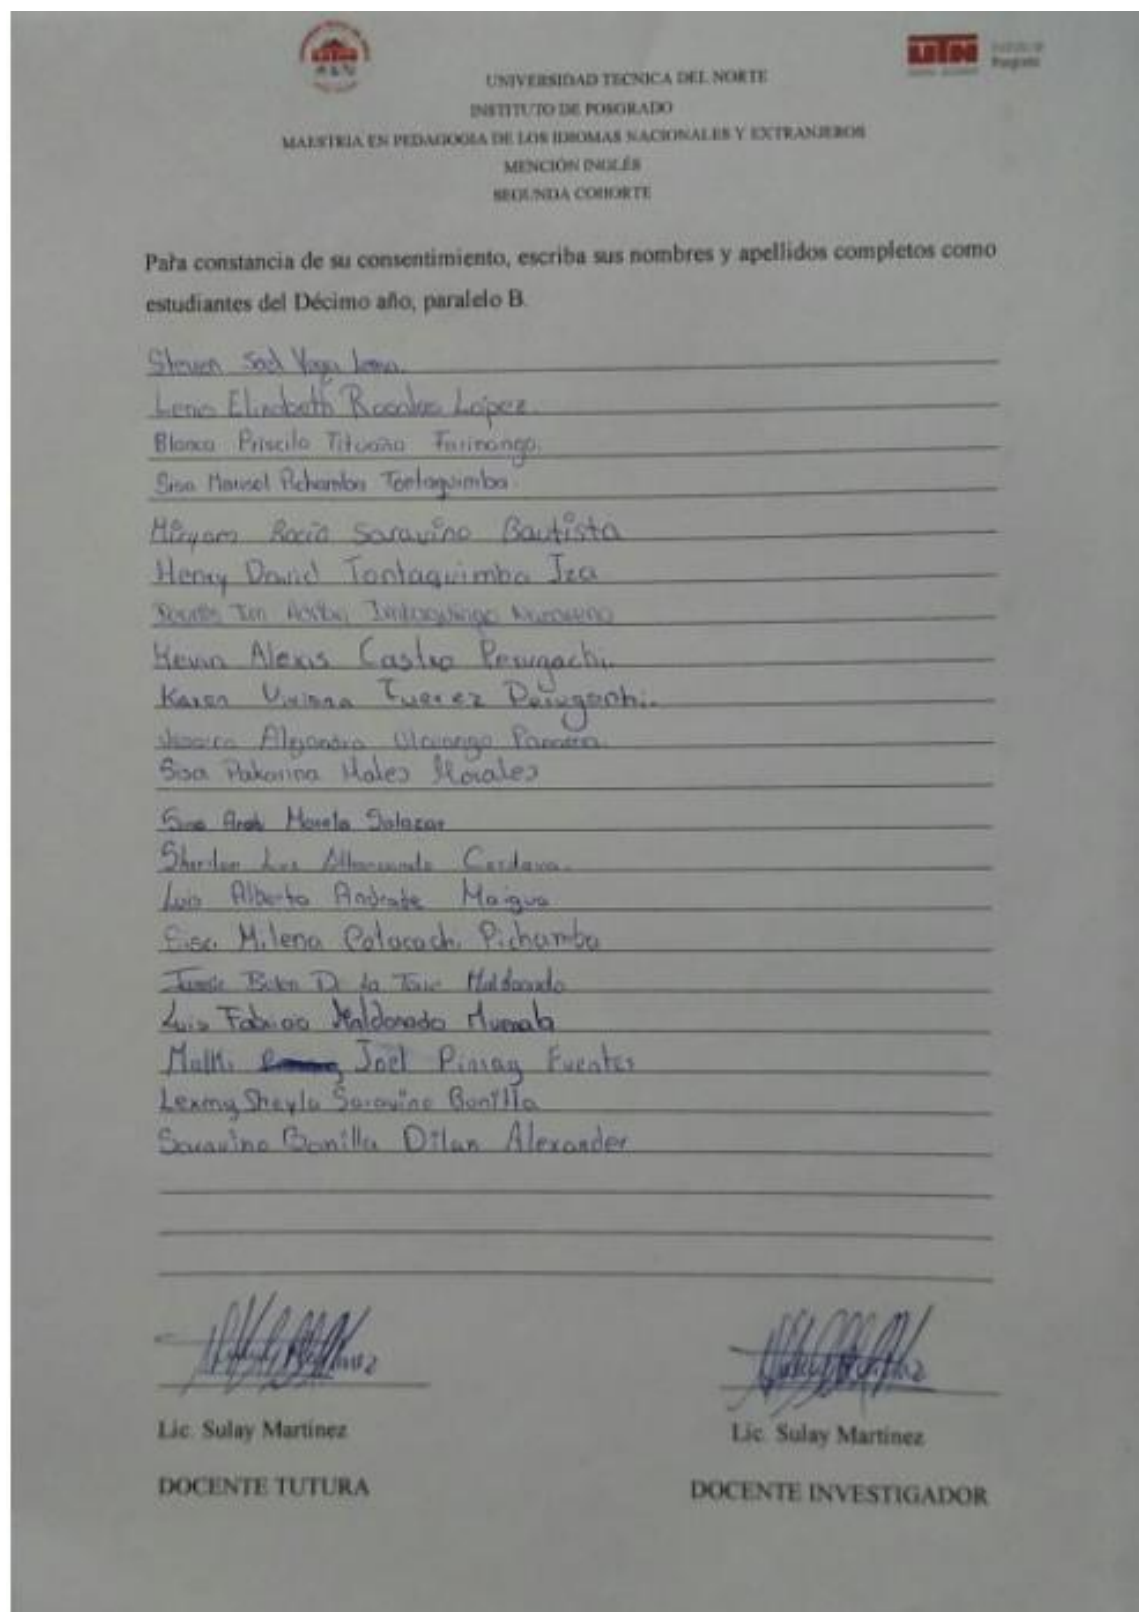 UTN
Posgrado
UNIVERSIDAD TECNICA DEL NORTE
INSTITUTO DE POSGRADO
MAESTRIA EN PEDAGOGIA DE LOS IDIOMAS NACIONALES Y EXTRANJEROS
MENCIÓN INGLÉS
SEGUNDA COHORTE
Para constancia de su consentimiento, escriba sus nombres y apellidos completos como
estudiantes del Décimo año, paralelo B.
Steven Lema
Elizabeth Rosales López
Blanca Priscila Tituaña Farinango
Sisa Marisol Pichamba Tontaquimba
Miryam Rocio Saravino Bautista
Henry David Tontaquimba Iza
Kevin Alexis Castro Perugachi
Karen Viviana Tuerez Perugachi
Alejandra
Sisa Pakarina Males Morales
Salazar
Luz
Luis Alberto Andrade Maigua
Milena Cotacachi Pichamba
De La Maldonado
Luis Fabricio Maldonado
Malki Joel Pinsag Fuentes
Sheyla Saravino Bonilla
Saravino Bonilla Dilan Alexander
Lic. Sulay Martinez Lic. Sulay Martinez
DOCENTE TUTURA DOCENTE INVESTIGADOR